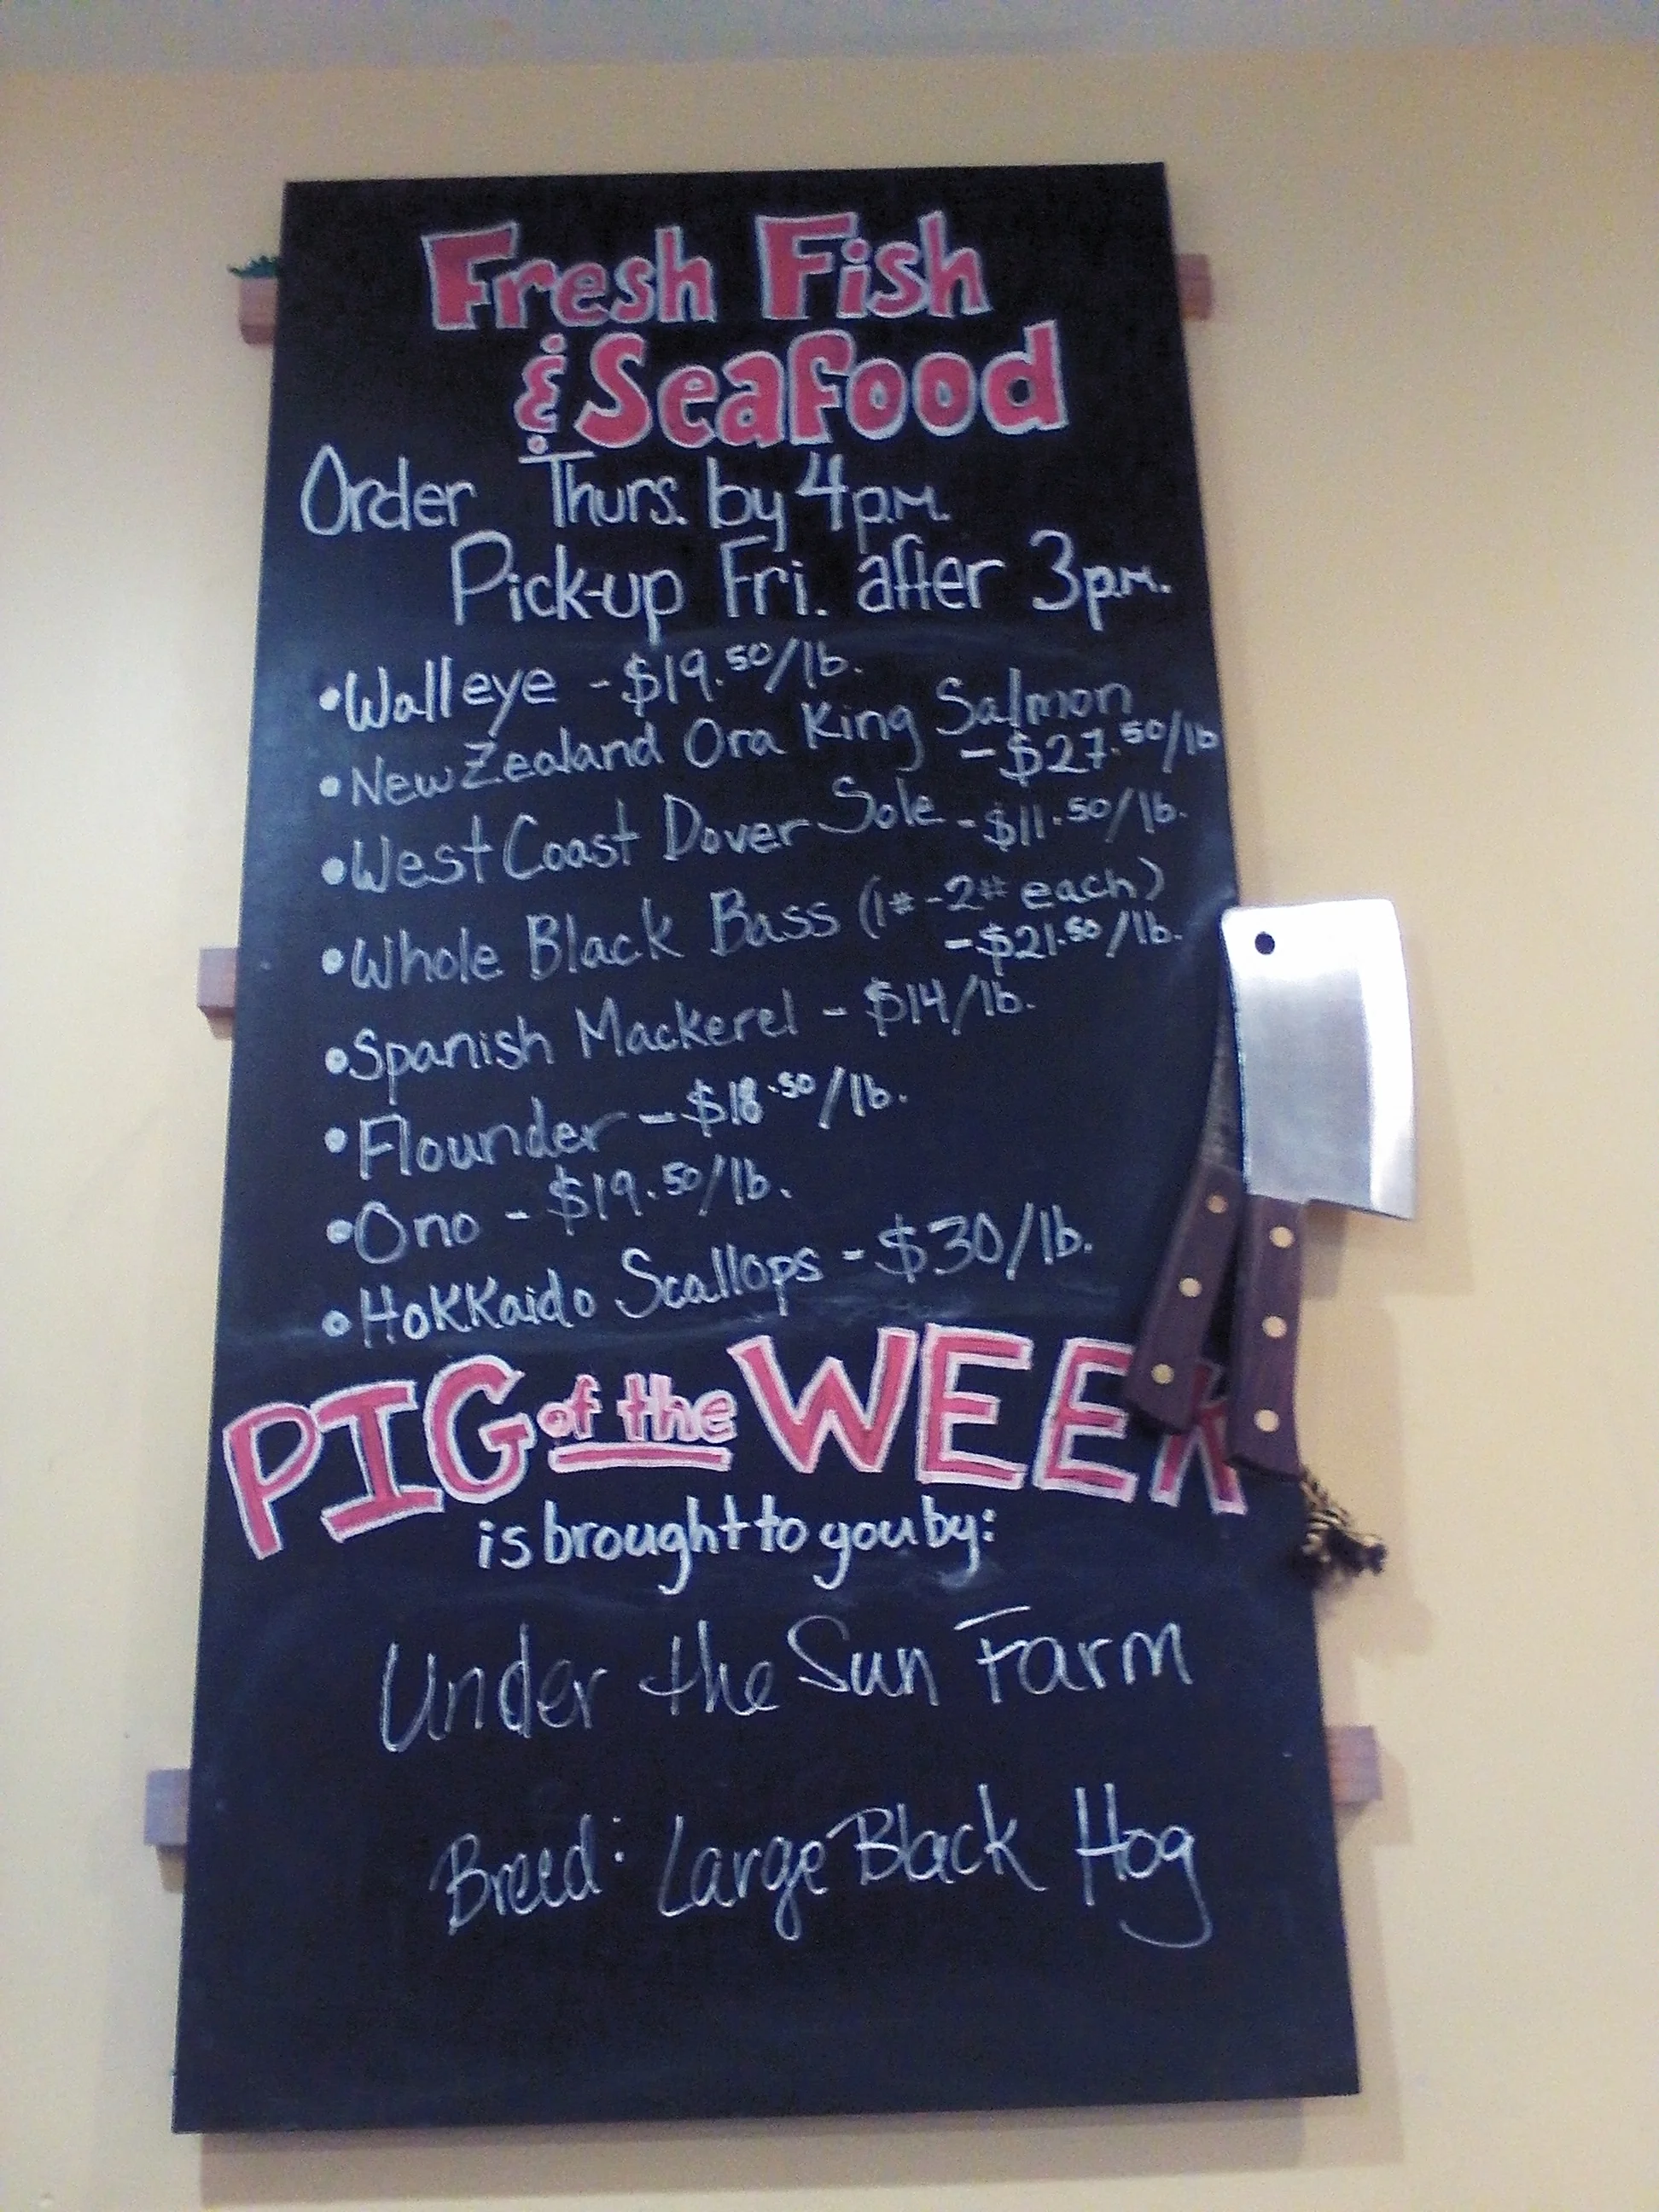 Fresh Fish
& Seafood
Order Thurs. by 4p.m.
Pick-up Fri. after 3p.m.
•Walleye - $19.50/lb.
•New Zealand Ora King Salmon
- $27.50/lb
•West Coast Dover Sole - $11.50/lb.
•Whole Black Bass (1#-2# each)
- $21.50/lb.
•Spanish Mackerel - $14/lb.
•Flounder - $18.50/lb.
•Ono - $19.50/lb.
•Hokkaido Scallops - $30/lb.
PIG of the WEEK
is brought to you by:
Under the Sun Farm
Breed: Large Black Hog